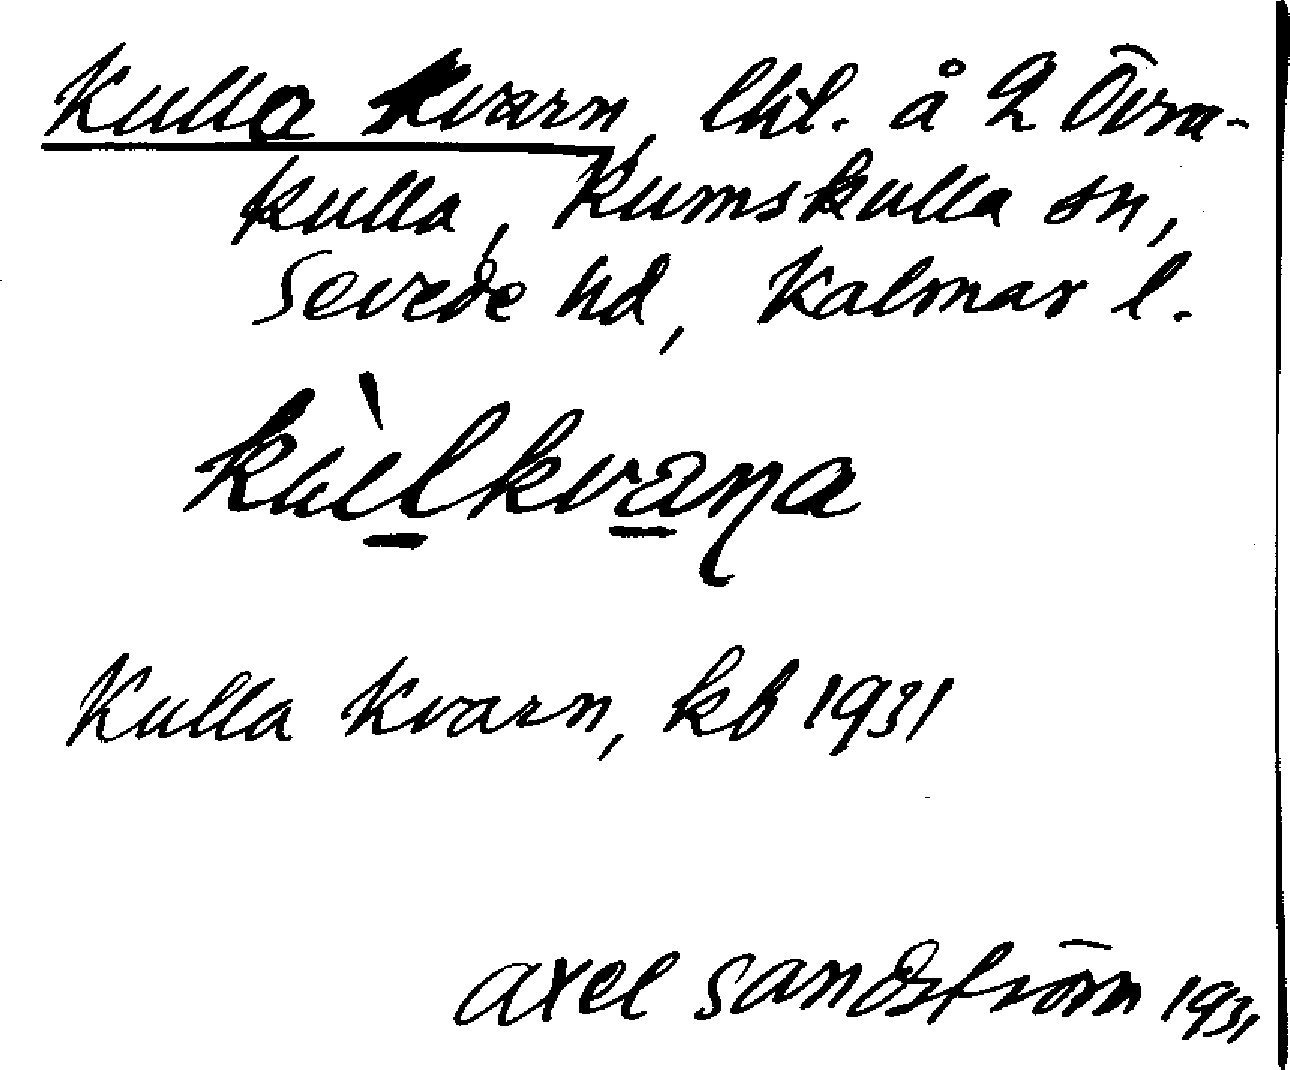 Kulla Kvarn, lht. å 2 Övra-
kulla, Rumskulla sn,
Sevede hd, Kalmar l.
Kulla Kvarn, kb 1931
Axel Sandström 1931